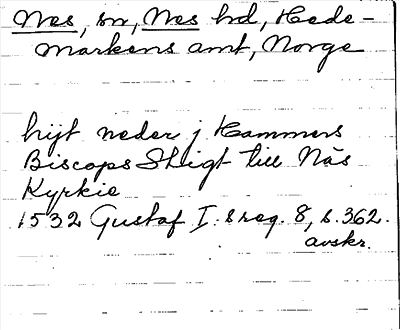 Nes, sn, Nes hd, Hede-
markens amt, Norge
hijt neder j Hammers
Biscops Stigt till Näs
Kyrkie
1532 Gustaf I:s reg. 8, s. 362.
avskr.